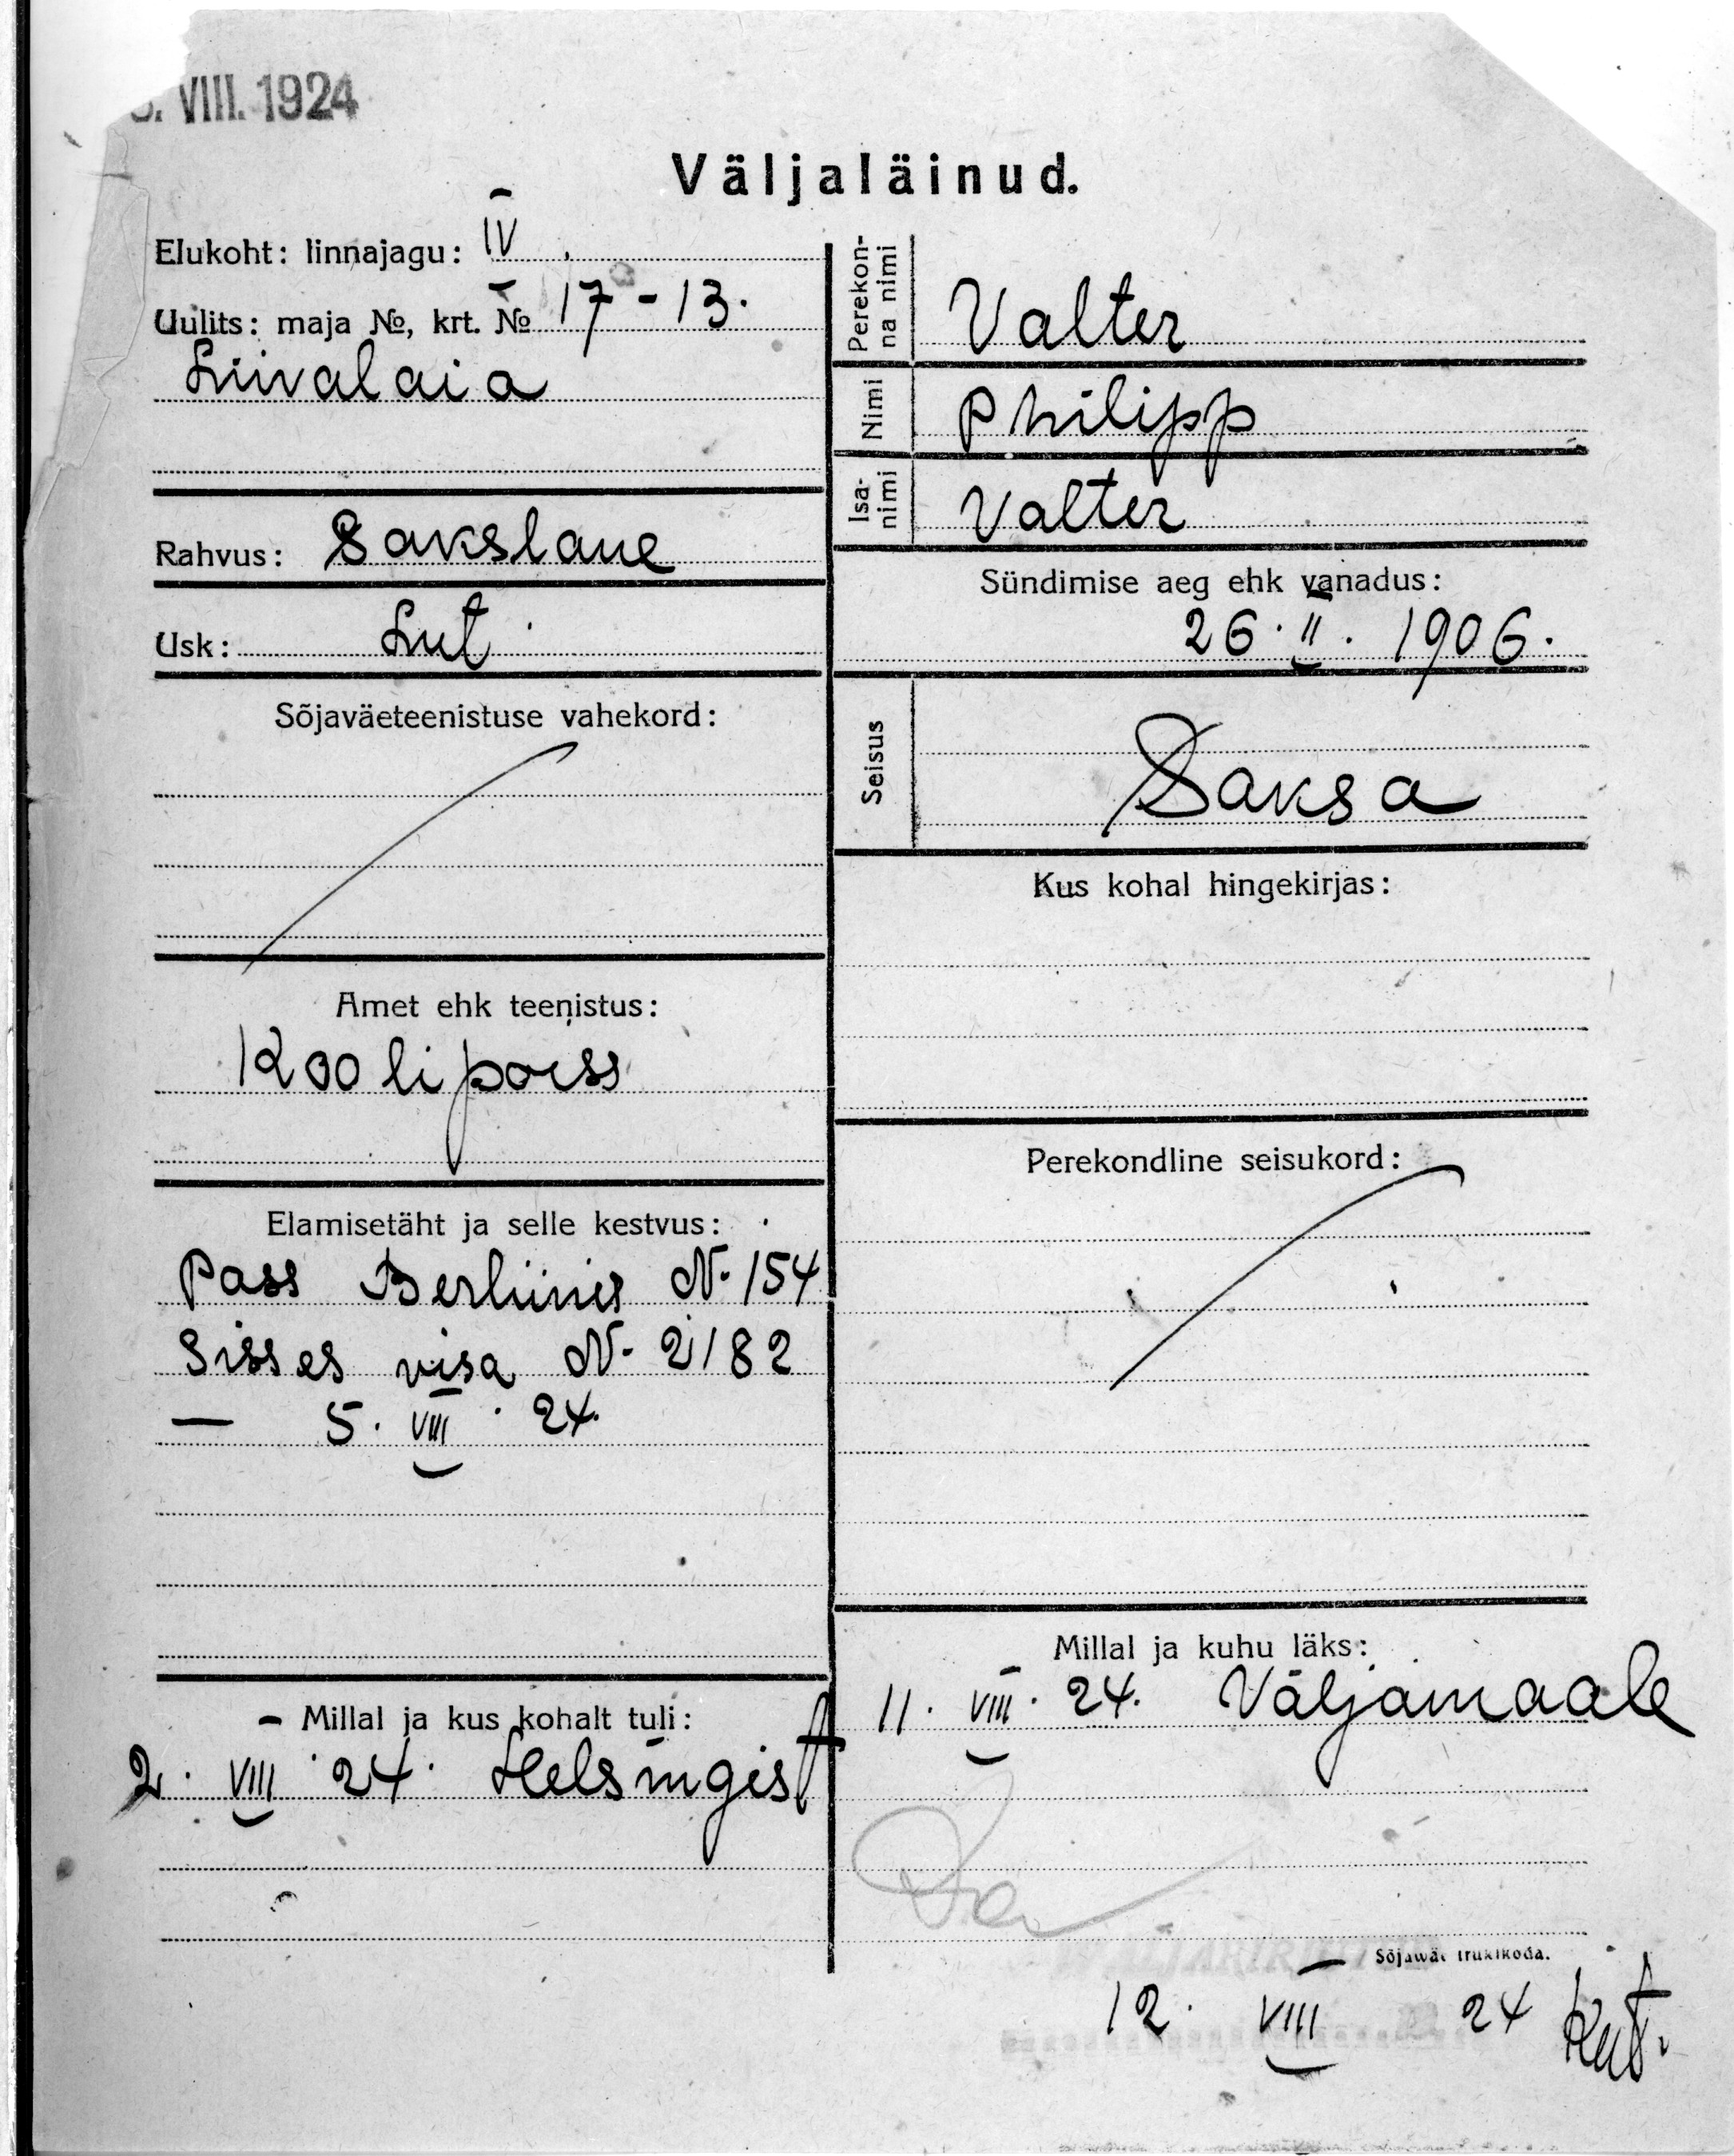 . VIII. 1924
Väljaläinud.
Elukoht: linnajagu: IV.
Uulits: maja №, krt. № 17-13.
Liivalaia
Rahvus: Sakslane
Usk: Lut.
Sõjaväeteenistuse vahekord:
Amet ehk teenistus:
Koolipoiss
Elamisetäht ja selle kestvus:
Pass Berliinis N. 154
Sisses visa N. 2182
— 5. VIII. 24.
Millal ja kus kohalt tuli:
2. VIII. 24. Helsingist
Perekon-
na nimi
Valter
Nimi
Philipp
Isa-
nimi
Valter
Sündimise aeg ehk vanadus:
26. II. 1906.
Seisus
Saksa
Kus kohal hingekirjas:
Perekondline seisukord:
Millal ja kuhu läks:
11. VIII. 24. Väljamaale
Sõjawäe trükikoda.
12. VIII 24